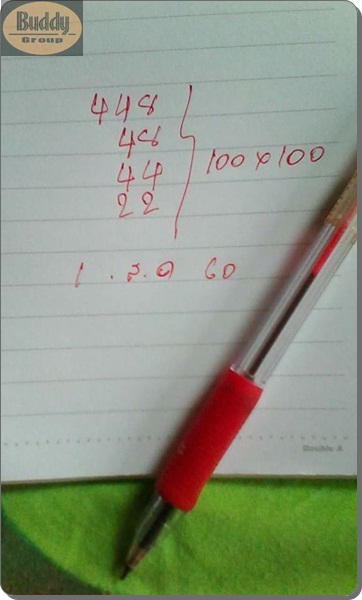 Buddy
Group
448
48
44 100 x 100
22
1 60
Double A